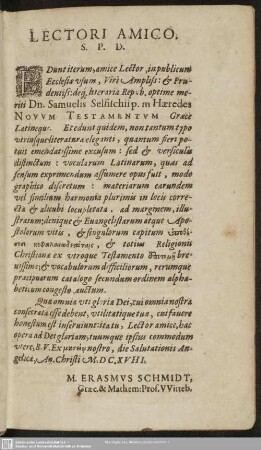 LECTORI AMICO.
S. P. D.
EDunt iterum, amice Lector, in publicum
Ecclesiæ usum, Viri Ampliss: & Pru-
dentiss: deq́; literaria Repub. optime me-
riti Dn. Samuelis Selfischii p. m Hæredes
NOVVM TESTAMENTVM Græce
Latineque. Et edunt quidem, non tantum typo
utriusque literatura eleganti, quantum fieri po-
tuit emendatissime excusum: sed & versiculis
distinctum: vocularum Latinarum, quas ad
sensum exprimendum assumere opus fuit, modo
graphico discretum: materiarum earundem
vel similium harmonia plurimis in locis corre-
cta & alicubi locupletata, ad marginem, illu-
stratum; denique & Euangelistarum atque Apo-
stolorum vitis, & singulorum capitum
& totius Religionis
Christianæ ex utroque Testamento bre-
vissime; & vocabulorum difficiliorum, rerumque
præcipuarum catalogo secundum ordinem alpha-
beticum congesto auctum.
Quæ omnia uti gloria Dei, cui omnia nostra
consecrata esse debent, utilitatique tua, cui favere
honestum est inserviunt: ita tu, Lector amice, hac
opera ad Dei gloriam, tuumque ipsius commodum
utere. B. V. Ex nostro, die Salutationis An-
gelicæ, An. Christi M. DC. XVIII.
M. ERASMVS SCHMIDT,
Græc. & Mathem: Prof. VVitteb.